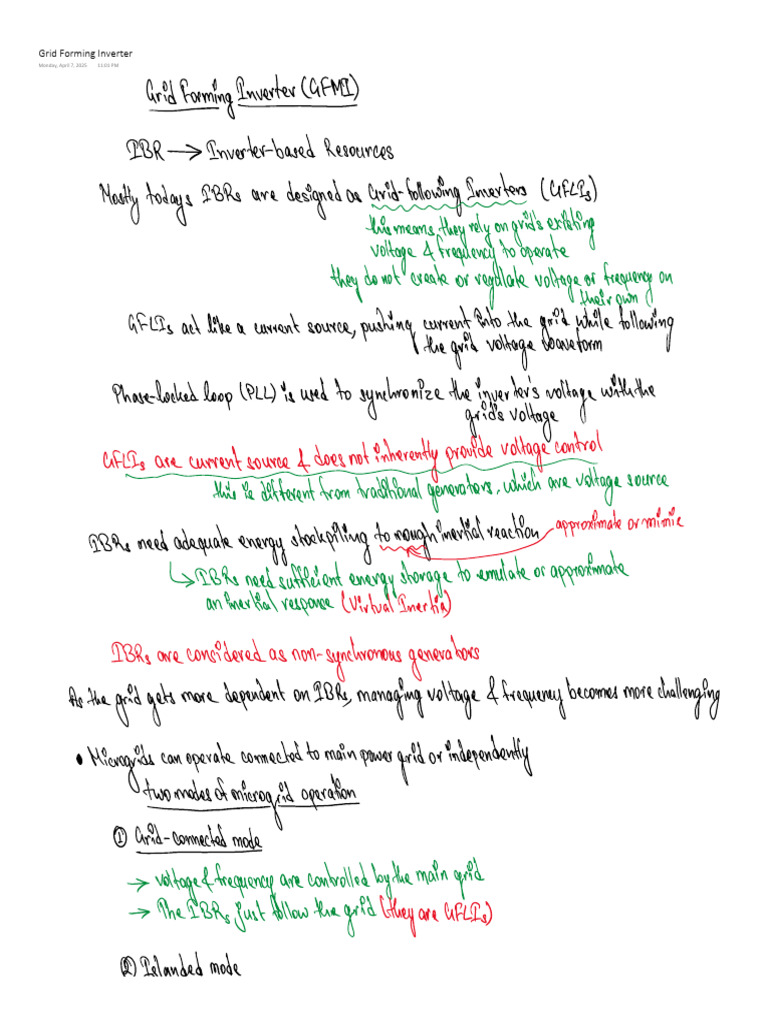 Grid Forming Inverter
Monday, April 7, 2025 11:03 PM
Grid Forming Inverter (GFMI)
IBR → Inverter-based Resources
Mostly todays IBRs are designed as Grid-following Inverters (GFLIs)
this means they rely on grid's existing
voltage & frequency to operate
they do not create or regulate voltage or frequency on
their own
GFLIs act like a current source, pushing current into the grid while following
the grid voltage waveform
Phase-locked loop (PLL) is used to synchronize the inverter's voltage with the
grid's voltage
GFLIs are current source & does not inherently provide voltage control
this is different from traditional generators, which are voltage source
IBRs need adequate energy stockpiling to rough inertial reaction approximate or mimic
↳ IBRs need sufficient energy storage to emulate or approximate
an inertial response (Virtual Inertia)
IBRs are considered as non-synchronous generators
As the grid gets more dependent on IBRs, managing voltage & frequency becomes more challenging
• Microgrids can operate connected to main power grid or independently
two modes of microgrid operation
① Grid-connected mode
→ voltage & frequency are controlled by the main grid
→ The IBRs just follow the grid (they are GFLIs)
② Islanded mode